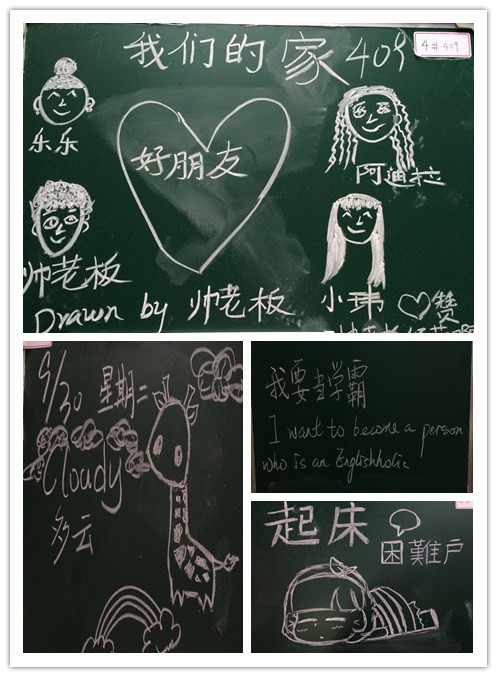 我们的家409
4#409
乐乐
好朋友
阿迪拉
帅老板
小玮 赞
Drawn by 帅老板
9/30 星期二
Cloudy
多云
我要当学霸
I want to become a person
who is an Englishholic
起床
困難户